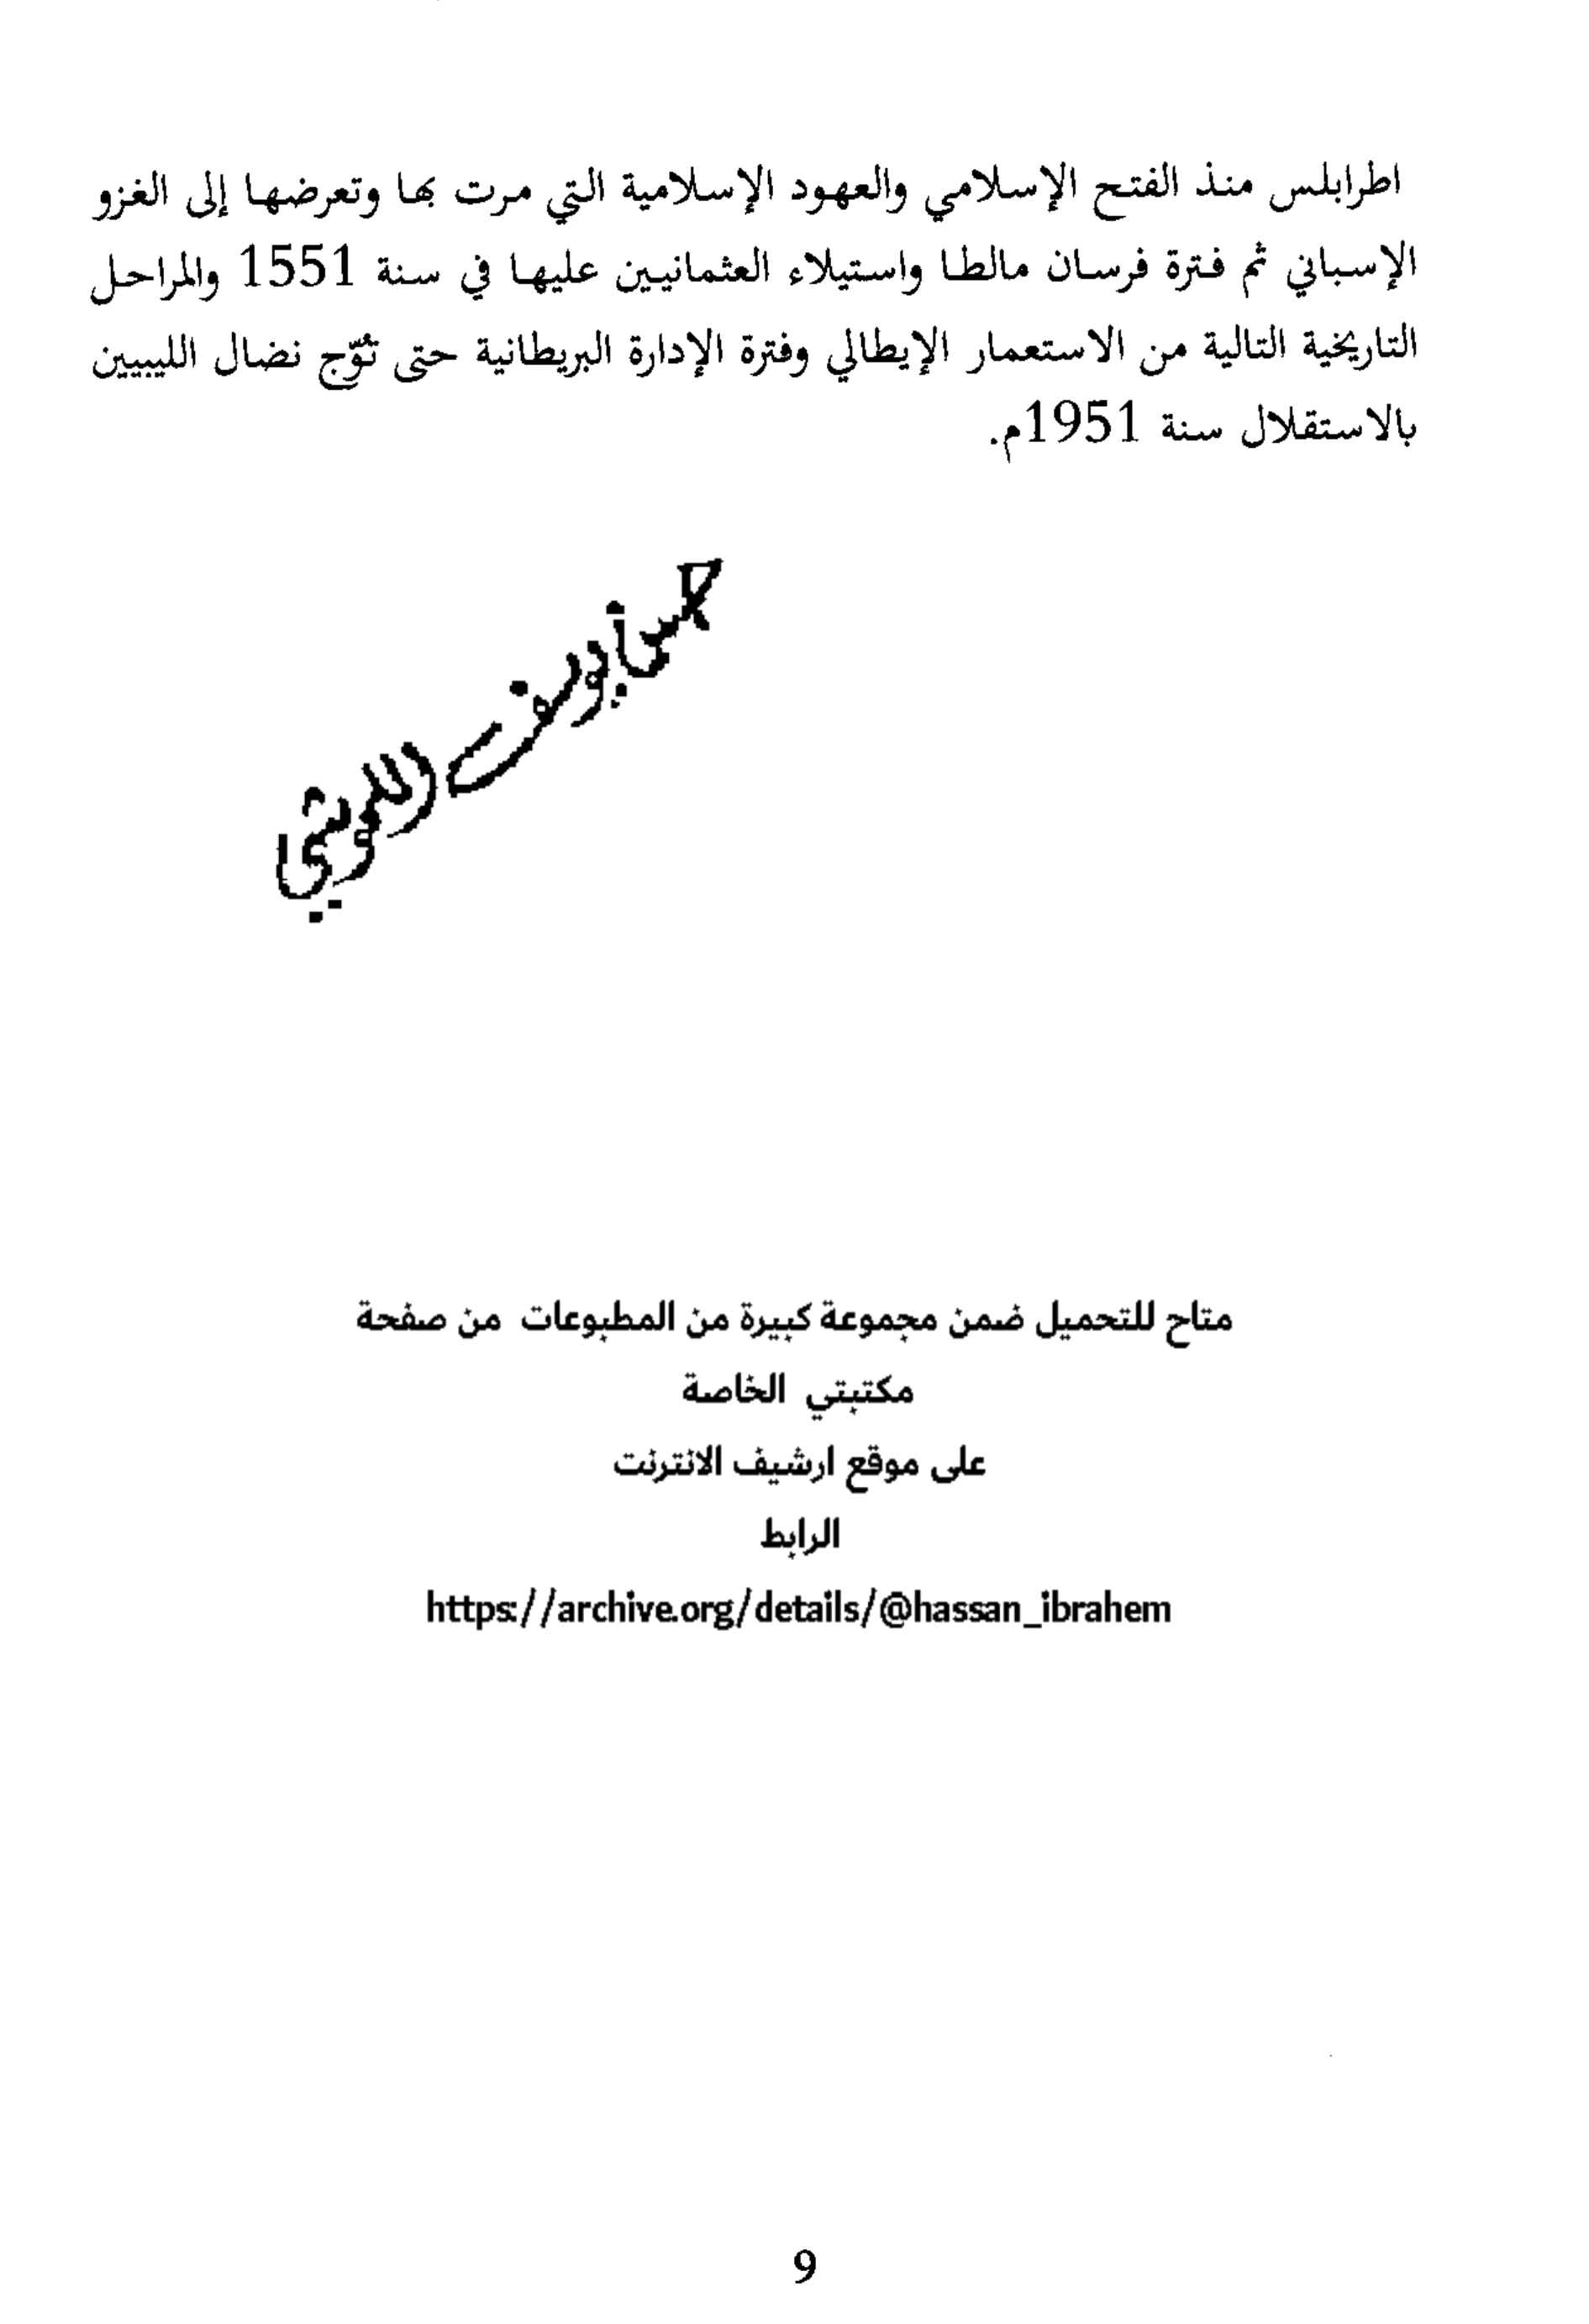 اطرابلس منذ الفتح الإسلامي والعهود الإسلامية التي مرت بها وتعرضها إلى الغزو
الإسباني ثم فترة فرسان مالطا واستيلاء العثمانيين عليها في سنة 1551 والمراحل
التاريخية التالية من الاستعمار الإيطالي وفترة الإدارة البريطانية حتى تُوّج نضال الليبيين
بالاستقلال سنة 1951م.
متاح للتحميل ضمن مجموعة كبيرة من المطبوعات من صفحة
مكتبتي الخاصة
على موقع ارشيف الانترنت
الرابط
https://archive.org/details/@hassan_ibrahem
9